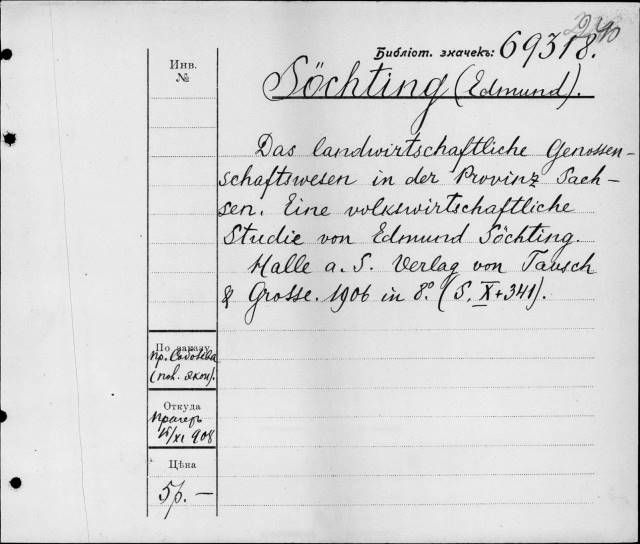 Библіот. значекъ: 69318.
Söchting (Edmund).
Инв.
№
Das landwirtschaftliche Genossen-
schaftswesen in der Provinz Sach-
sen. Eine volkswirtschaftliche
Studie von Edmund Söchting.
Halle a. S. Verlag von Tausch
& Grosse. 1906 in 8° (S. X+341).
По заказу
пр.
Откуда
Прагеръ
/XI 908
Цѣна
5р. —